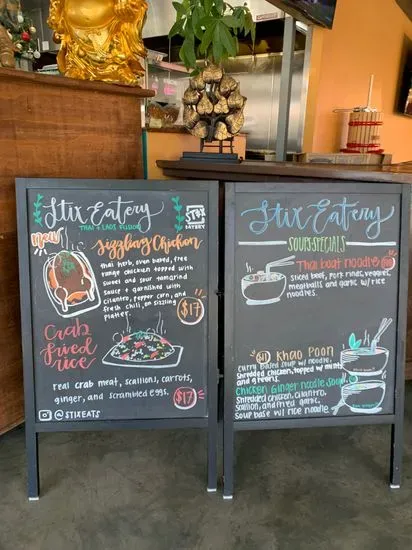 Stix Eatery
THAI & LAOS FUSION
STIX
EATERY
New
Sizzling Chicken
thai herb, oven baked, free
range chicken topped with
sweet and sour tamarind
soup & garnished with
cilantro, pepper corn, and
fresh chili on sizzling
platter.
$17
Crab
fried
rice
real crab meat, scallions, carrots,
ginger, and scrambled eggs.
$17
@STIXEATS
Stix Eatery
SOUP SPECIALS
Thai boat noodle
sliced beef, pork rinds, veggies,
meatballs and garlic w/ rice
noodles.
$11 Khao Poon
curry based soup w/ noodles,
shredded chicken, topped w/ mint
and greens.
Chicken Ginger Noodle Soup
shredded chicken, cilantro,
scallion, and fried garlic.
Soup base w/ rice noodle